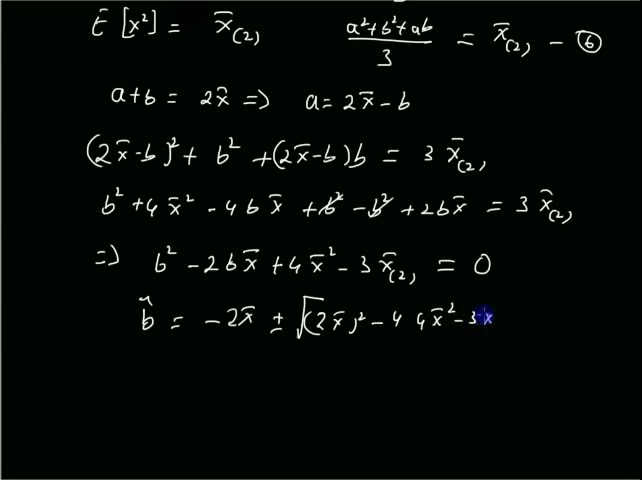 E [x²] = x̄₍₂₎    (a²+b²+ab)/3 = x̄₍₂₎ - ⑥
a+b = 2x̄ => a = 2x̄ - b
(2x̄-b)² + b² + (2x̄-b)b = 3 x̄₍₂₎
b² + 4x̄² - 4bx̄ + b² - b² + 2bx̄ = 3 x̄₍₂₎
=> b² - 2bx̄ + 4x̄² - 3x̄₍₂₎ = 0
b̂ = -2x̄ ± √(2x̄)² - 4 4x̄² - 3x